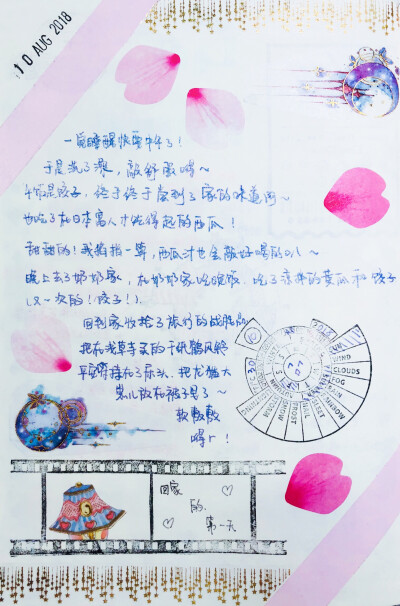 10 AUG 2018
一觉睡醒快要中午了!
于是洗了澡,敲舒服哒~
午饭是饺子,终于终于尝到了家的味道啊~
也吃了在日本富人才能得起的西瓜!
甜甜的!我妈拍一半,西瓜汁也会敲好喝的叭~
晚上去了奶奶家,在奶奶家吃晚饭,吃了凉拌的黄瓜和饺子
(又一次的!饺子!).
回到家收拾了旅行的战胜品
把在浅草寺买的千纸鹤风铃
平安符挂在了床头,把龙猫大
靠儿放在被子里了~
软敷敷
嘚r!
WIND
CLOUDS
FOG
SUN
回家
的
第一天